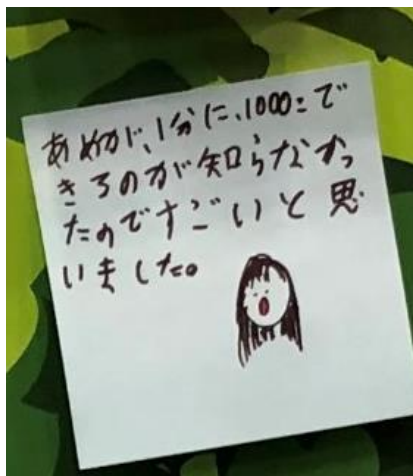 あめが、1分に、1000こで
きるのが知らなかっ
たのですごいと思
いました。